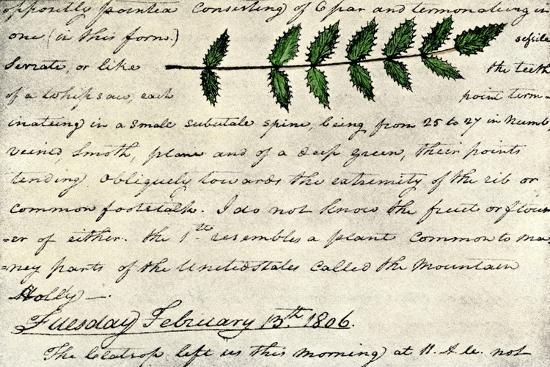 ppositly pointed Consisting of 6 par and termonateing in
one (in this form.) sessile
Serrate, or like the teeth
of a whipsaw, each point term=
inateing in a small subulate spine, being from 25 to 27 in numb
veined Smoth, plane and of a deep green, their points
tending obliquely towards the extremity of the rib or
common footstalk. I do not know the fruit or flow
=er of either. the 1st resembles a plant Common to ma
=ney parts of the Unitedstates called the Mountain
Holly—.
Tuesday February 13th 1806.
The Clatsop left us this morning at 11. A.M. not